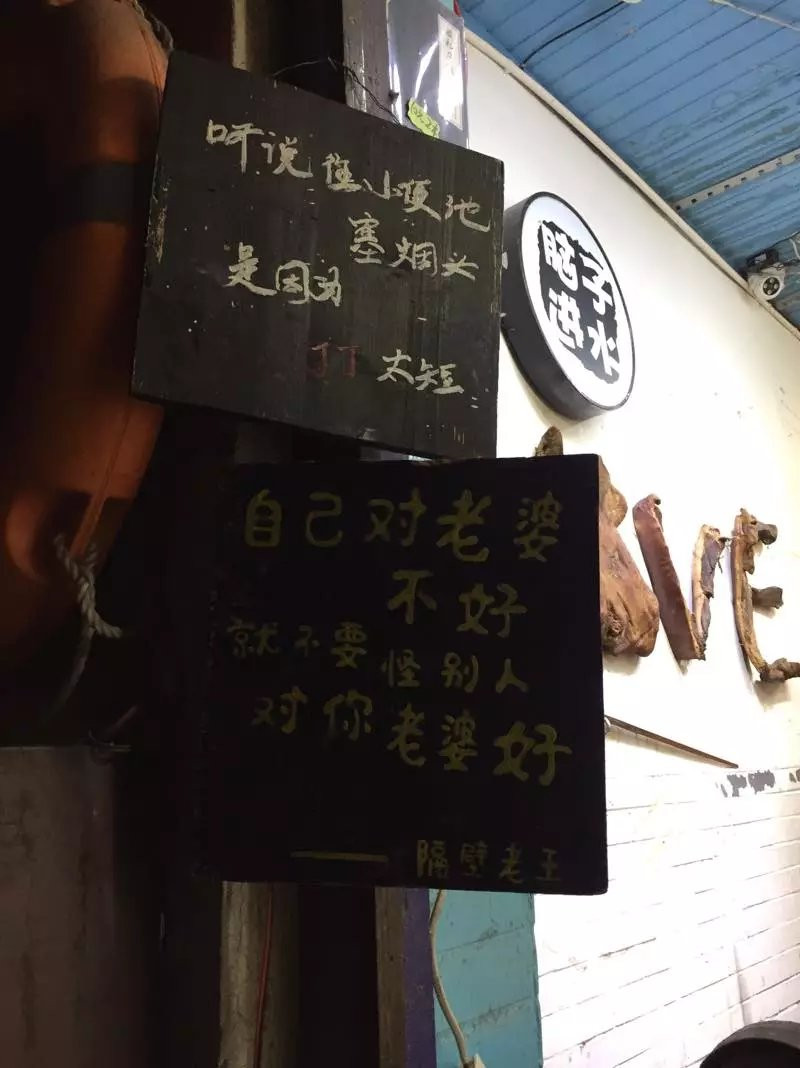 听说往小便池
塞烟头
是因为
JJ 太短
脑子
进水
VE
自己对老婆
不好
就不要怪别人
对你老婆好
—隔壁老王